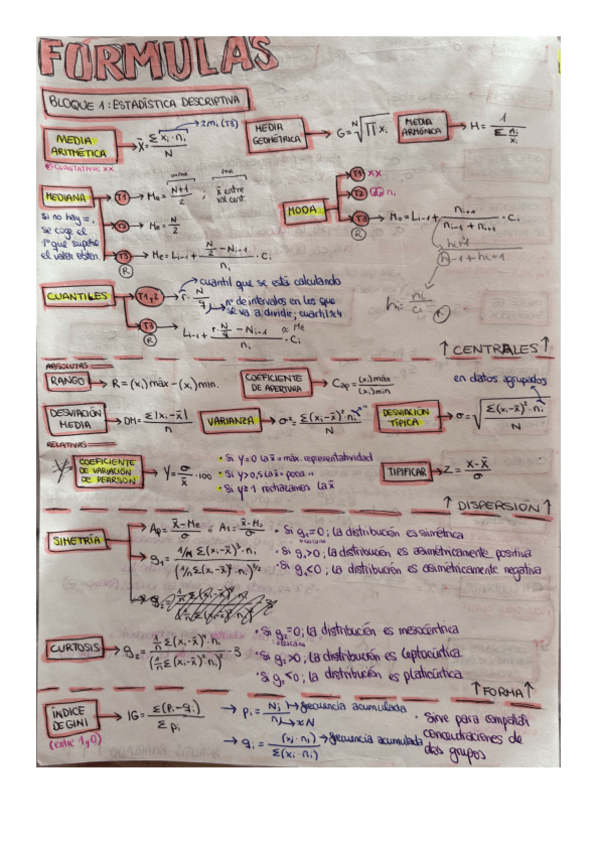 FÓRMULAS
BLOQUE 1: ESTADÍSTICA DESCRIPTIVA
MEDIA ARITMÉTICA → x̄ = Σ xi · ni / N
MEDIA GEOMÉTRICA → G = ᴺ√∏ xi
MEDIA ARMÓNICA → H = 1 / Σ ni/xi
MEDIANA
T1 → Me = N+1 / 2 , x̄ entre
T2 → Me = N/2
T3 → Me = Li-1 + (N/2 - Ni-1) / ni · Ci
Si no hay =,
se coge el
1º que supere
el valor
MODA
T1 xx
T2 ni
T3 → Mo = Li-1 + ni+1 / (ni-1 + ni+1) · Ci
hi+1 / hi-1 + hi+1
hi = ni / ci
CUANTILES
T1,2 → r · N/q
cuantil que se está calculando
nº de intervalos en los que
se va a dividir; cuartil x4
T3 → Li-1 + (r · N/q - Ni-1) / ni · Ci
≈ Me
↑ CENTRALES ↑
ABSOLUTAS
RANGO → R = (xi) máx - (xi) min.
COEFICIENTE DE APERTURA → Cap = (xi) máx / (xi) min
en datos agrupados
DESVIACIÓN MEDIA → DM = Σ |xi - x̄| / n
VARIANZA → σ² = Σ (xi - x̄)² · ni / N
DESVIACIÓN TÍPICA → σ = √ Σ (xi - x̄)² · ni / N
RELATIVAS
COEFICIENTE DE VARIACIÓN DE PEARSON → V = σ / x̄ · 100
• Si V=0 la x̄ = máx. representatividad
• Si V>0,5 la x̄ = poca "
• Si V≥1 rechazamos la x̄
TIPIFICAR → Z = x - x̄ / σ
↑ DISPERSIÓN ↑
SIMETRÍA
Ap = x̄ - Me / σ ó As = x̄ - Mo / σ
g1 = 1/N Σ (xi - x̄)³ · ni / (1/n Σ (xi - x̄)² · ni)^3/2
• Si g1 = 0; la distribución es simétrica
• Si g1 > 0; la distribución es asimétricamente positiva
• Si g1 < 0; la distribución es asimétricamente negativa
CURTOSIS → g2 = 1/n Σ (xi - x̄)⁴ · ni / (1/n Σ (xi - x̄)² · ni)² - 3
• Si g2 = 0; la distribución es mesocéntrica
• Si g2 > 0; la distribución es leptocúrtica
• Si g2 < 0; la distribución es platicúrtica
↑ FORMA ↑
ÍNDICE DE GINI → IG = Σ (Pi - qi) / Σ pi
(entre 1 y 0)
→ pi = Ni / n → frecuencia acumulada
→ qi = (xi · ni) / Σ (xi · ni) → frecuencia acumulada
• Sirve para comparar
concentraciones de
dos grupos